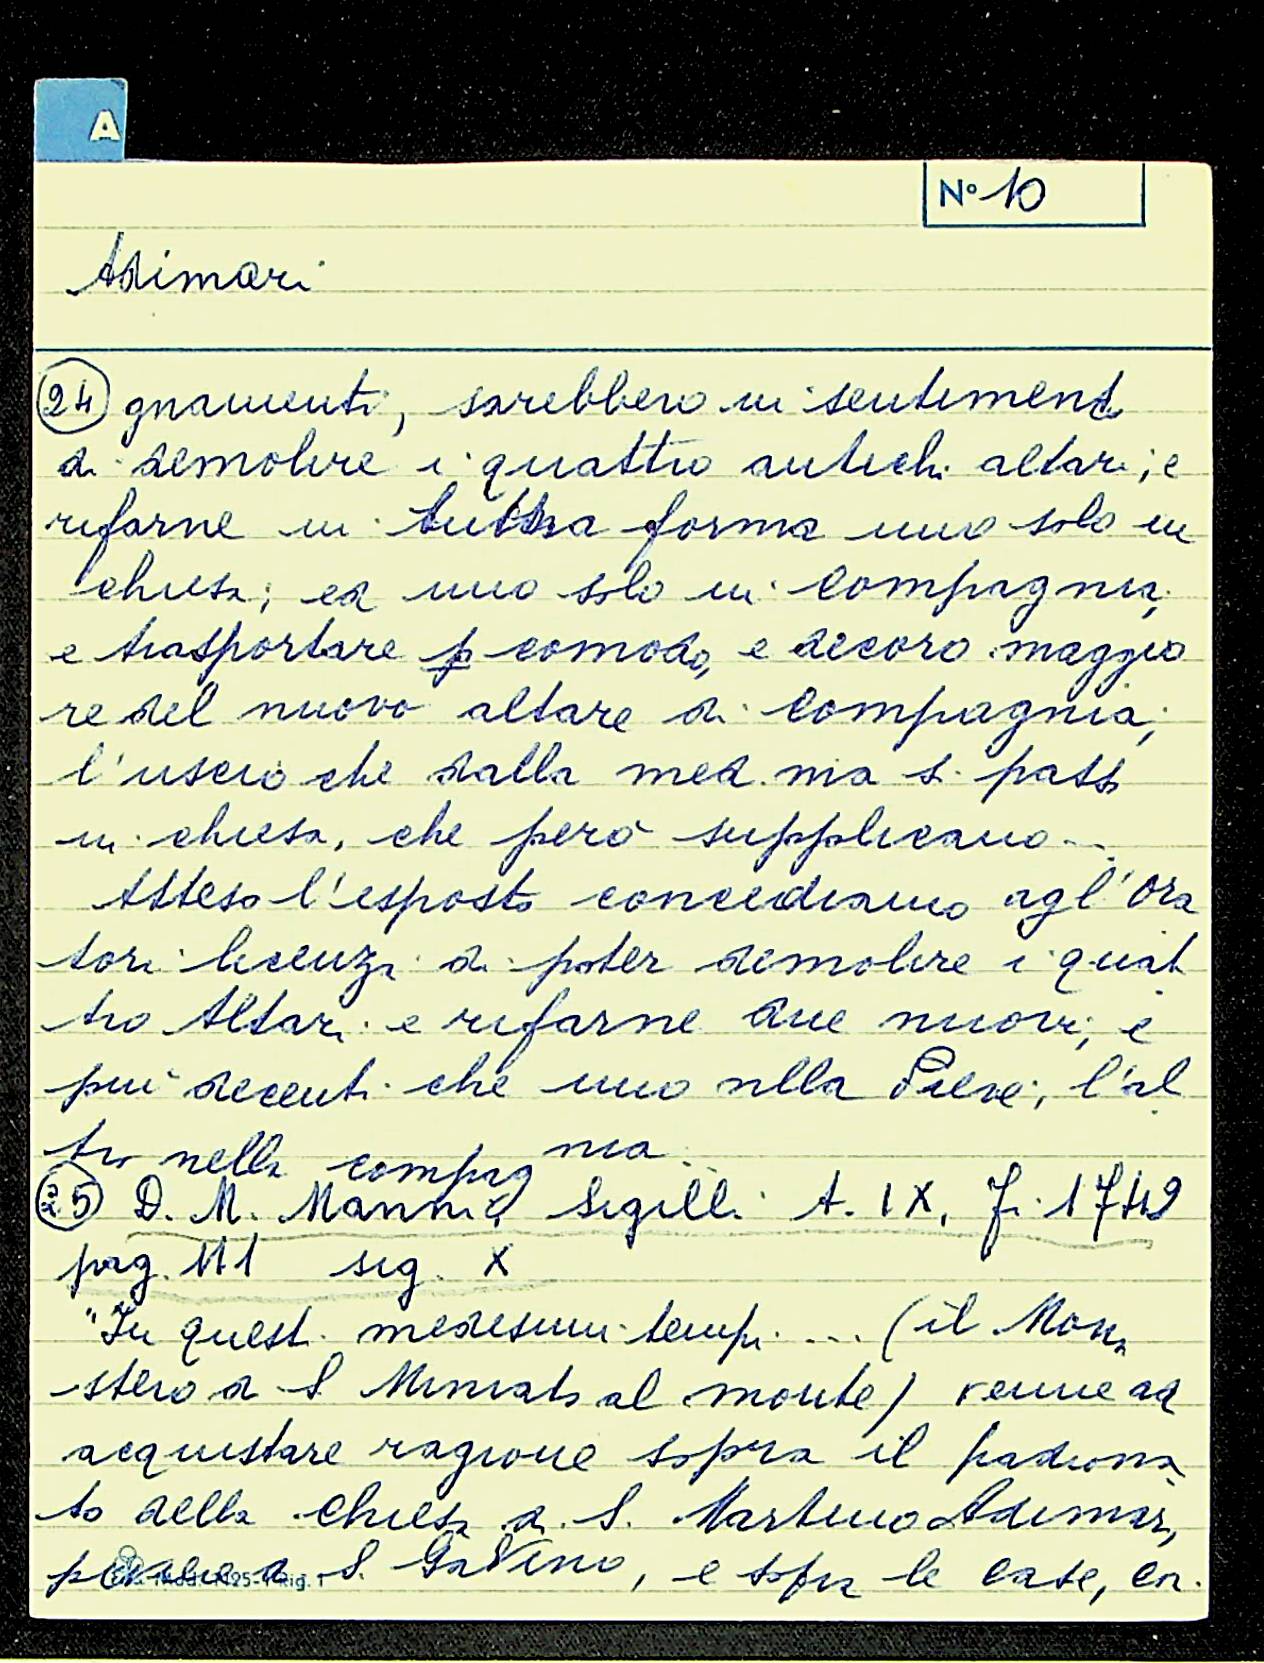 A
N° 10
Adimari
24 gnamenti, sarebbero in sentiment
di demolire i quattro antichi altari; e
rifarne in forma uno solo in
chiesa; ed uno solo in compagnia,
e trasportare p comodo, e decoro maggio
re del nuovo altare di compagnia;
l'uscio che dalla med. nia si passa
in chiesa, che però supplicano...
Atteso l'esposto concediamo agl'Ora
tori licenza di poter demolire i quat
tro Altari e rifarne due nuovi, e
più decenti che uno nlla Pieve, l'al
tro nella compag nia...
25 D. M. Manni, Sigilli. t. IX, Fi 1742
pag. 111 sig. X
"In questi medesimi tempi ... (il Mona
stero di S Miniato al monte) venne ad
acquistare ragione sopra il padrona
to della Chiesa di S. Martino Adimari,
S. GaVino, e sopra le case, ed.
Mod. 125-1 Rig. 1